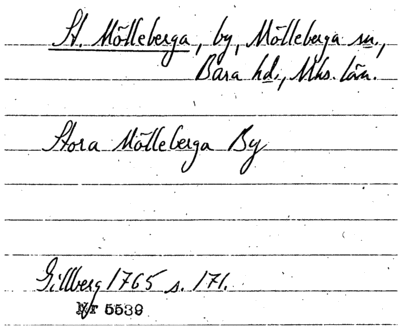 St. Mölleberga, by, Mölleberga sn.,
Bara hd., Mhs. län.
Stora Mölleberga By
Gillberg 1765 s. 171.
Nr 5539